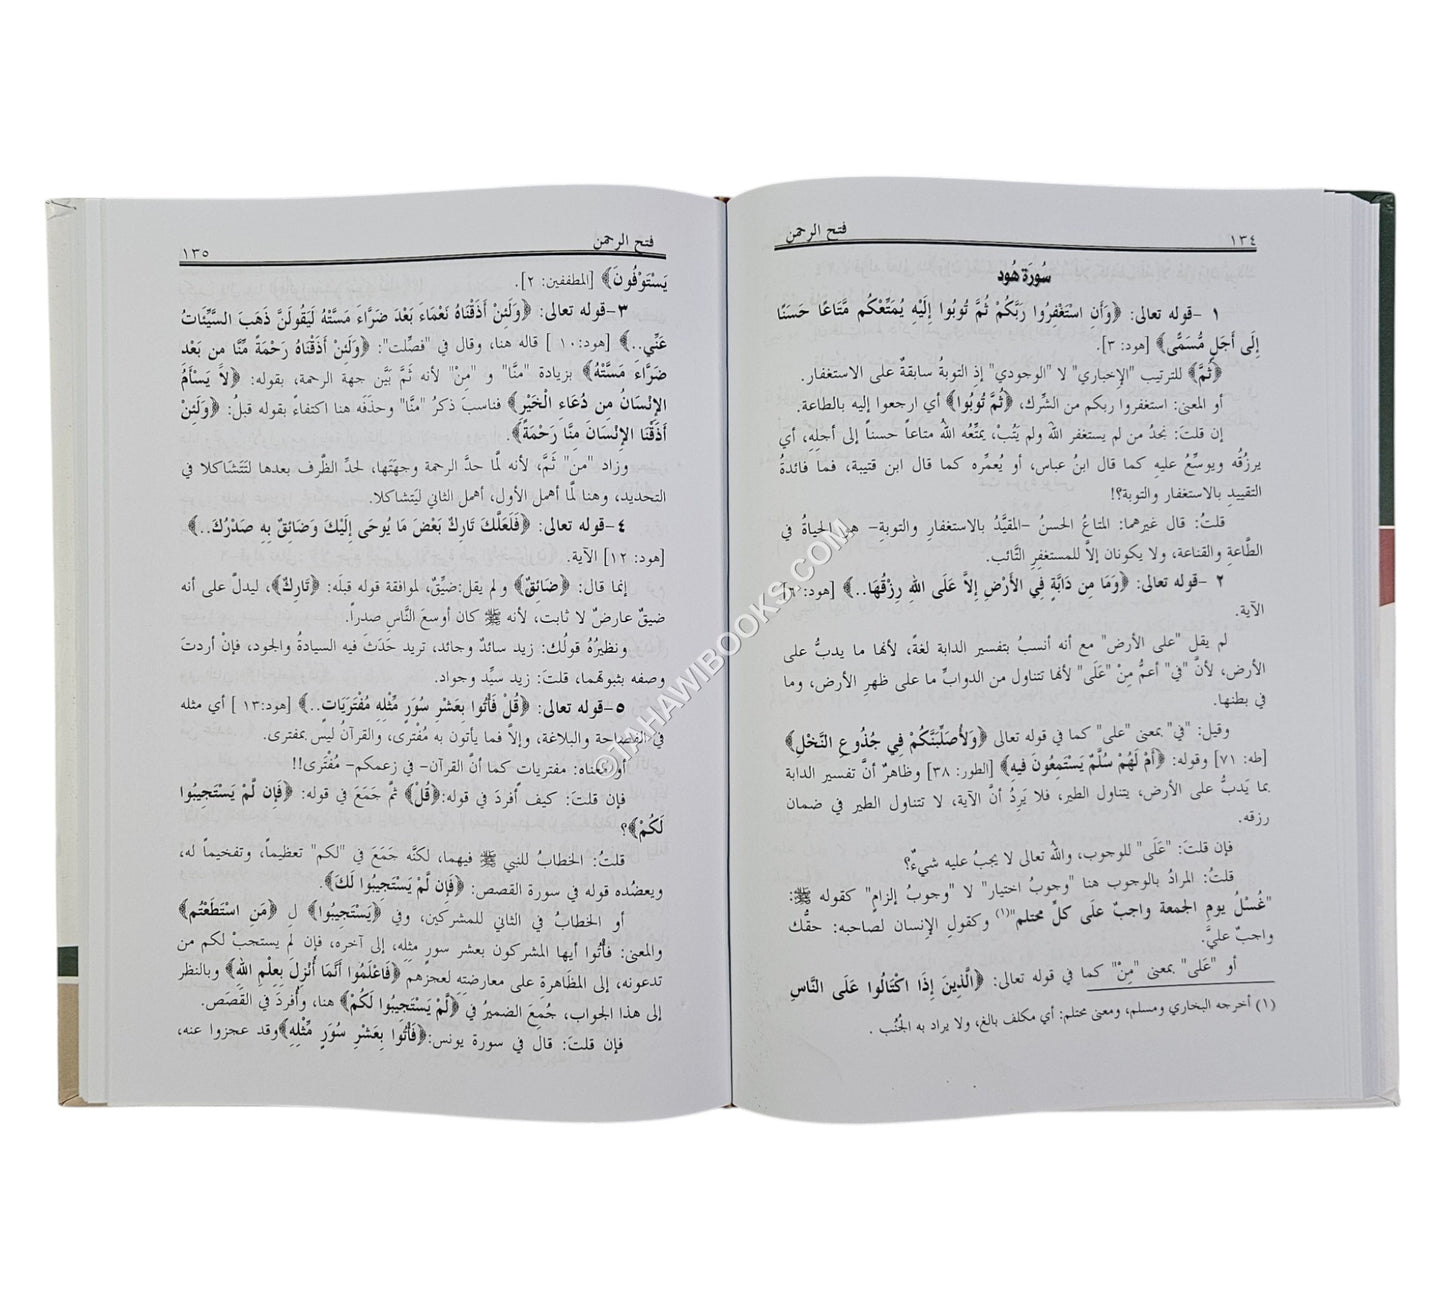 ١٣٤ فتح الرحمن
سُورَة هُود
١ -قوله تعالى: ﴿وَأَنِ اسْتَغْفِرُوا رَبَّكُمْ ثُمَّ تُوبُوا إِلَيْهِ يُمَتِّعْكُم مَّتَاعًا حَسَنًا
إِلَى أَجَلٍ مُّسَمًّى﴾ [هود: ٣].
﴿ثُمَّ﴾ للترتيب "الإخباري" لا "الوجودي" إذِ التوبةُ سابقةٌ على الاستغفار.
أو المعنى: استغفروا ربكم من الشِّرك، ﴿ثُمَّ تُوبُوا﴾ أي ارجعوا إليه بالطاعة.
إن قلتَ: نجدُ من لم يستغفر اللهَ ولم يَتُبْ، يمتِّعُه اللهُ متاعاً حسناً إلى أجلِهِ، أي
يرزُقُه ويوسِّعُ عليهِ كما قال ابنُ عباس، أو يُعمِّره كما قال ابن قتيبة، فما فائدةُ
التقييدِ بالاستغفار والتوبة؟!
قلتُ: قال غيرهما: المتاعُ الحسنُ -المقيَّدُ بالاستغفارِ والتوبةِ- هي الحياةُ في
الطَّاعةِ والقناعة، ولا يكونان إلاَّ للمستغفرِ التَّائب.
٢ -قوله تعالى: ﴿وَمَا مِن دَابَّةٍ فِي الأَرْضِ إِلاَّ عَلَى اللهِ رِزْقُهَا..﴾ [هود: ٦]
الآية.
لم يقل "على الأرض" مع أنه أنسبُ بتفسير الدابة لغةً، لأنها ما يدبُّ على
الأرض، لأنَّ "في" أعمُّ مِنْ "عَلَى" لأنها تتناول من الدوابِّ ما على ظهرِ الأرض، وما
في بطنها.
وقيل: "في" بمعنى "على" كما في قوله تعالى ﴿وَلأُصَلِّبَنَّكُمْ فِي جُذُوعِ النَّخْلِ﴾
[طه: ٧١] وقوله: ﴿أَمْ لَهُمْ سُلَّمٌ يَسْتَمِعُونَ فِيهِ﴾ [الطور: ٣٨] وظاهرٌ أنَّ تفسير الدابة
بما يَدبُّ على الأرض، يتناول الطير، فلا يَرِدُ أنَّ الآية، لا تتناول الطير في ضمان
رزقه.
فإن قلتَ: "عَلَى" للوجوب، واللهُ تعالى لا يجبُ عليه شيءٌ؟
قلتُ: المرادُ بالوجوب هنا "وجوبُ اختيار" لا "وجوبُ إلزامٍ" كقوله ﷺ:
"غُسْلُ يومِ الجمعة واجبٌ علَى كلِّ محتلم"(١) وكقولِ الإنسان لصاحبه: حقُّك
واجبٌ عليَّ.
أو "عَلى" بمعنى "مِنْ" كما في قوله تعالى: ﴿الَّذِينَ إِذَا اكْتَالُوا عَلَى النَّاسِ
(١) أخرجه البخاري ومسلم، ومعنى محتلم: أي مكلف بالغ، ولا يراد به الجُنُب .
فتح الرحمن ١٣٥
يَسْتَوْفُونَ﴾ [المطففين: ٢].
٣-قوله تعالى: ﴿وَلَئِنْ أَذَقْنَاهُ نَعْمَاءَ بَعْدَ ضَرَّاءَ مَسَّتْهُ لَيَقُولَنَّ ذَهَبَ السَّيِّئَاتُ
عَنِّي..﴾ [هود:١٠ ] قاله هنا، وقال في "فصِّلت": ﴿وَلَئِنْ أَذَقْنَاهُ رَحْمَةً مِّنَّا مِن بَعْدِ
ضَرَّاءَ مَسَّتْهُ﴾ بزيادة "منَّا" و "مِنْ" لأنه ثَمَّ بَيَّن جهةَ الرحمة، بقوله: ﴿لاَ يَسْأَمُ
الإِنْسَانُ مِن دُعَاءِ الْخَيْرِ﴾ فناسبَ ذكرُ "منَّا" وحذَفَه هنا اكتفاءً بقوله قبلُ: ﴿وَلَئِنْ
أَذَقْنَا الإِنْسَانَ مِنَّا رَحْمَةً﴾.
وزاد "من" ثَمَّ، لأنه لمَّا حدَّ الرحمة وجهتَها، لحدِّ الظَّرف بعدها لتَتَشَاكلا في
التحديد، وهنا لمَّا أهمل الأول، أهمل الثاني ليَتشاكلا.
٤-قوله تعالى: ﴿فَلَعَلَّكَ تَارِكٌ بَعْضَ مَا يُوحَى إِلَيْكَ وَضَائِقٌ بِهِ صَدْرُكَ..﴾
[هود: ١٢] الآية.
إنما قال: ﴿ضَائِقٌ﴾ ولم يقل:ضيِّقٌ، لموافقة قوله قبلَه: ﴿تَارِكٌ﴾، ليدلَّ على أنه
ضيقٌ عارضٌ لا ثابت، لأنه ﷺ كان أوسعَ النَّاسِ صدراً.
ونظيرُهُ قولُك: زيد سائدٌ وجائد، تريد حَدَثَ فيه السيادةُ والجود، فإنْ أردتَ
وصفه بثبوتهما، قلتَ: زيد سيِّد وجواد.
٥-قوله تعالى: ﴿قُلْ فَأْتُوا بِعَشْرِ سُوَرٍ مِّثْلِهِ مُفْتَرَيَاتٍ..﴾ [هود:١٣ ] أي مثله
في الفصاحة والبلاغة، وإلاَّ فما يأتون به مُفْترى، والقرآنُ ليس بمفترى.
أو معناه: مفتريات كما أنَّ القرآن- في زعمكم- مُفْتَرى!!
فإن قلتَ: كيف أفردَ في قوله:﴿قُلْ﴾ ثمَّ جَمَعَ في قوله: ﴿فَإِن لَّمْ يَسْتَجِيبُوا
لَكُمْ﴾؟
قلتُ: الخطابُ للنبي ﷺ فيهما، لكنَّه جَمَعَ في "لكم" تعظيماً، وتفخيماً له،
ويعضُده قوله في سورة القصص: ﴿فَإِن لَّمْ يَسْتَجِيبُوا لَكَ﴾.
أو الخطابُ في الثاني للمشركين، وفي ﴿يَسْتَجِيبُوا﴾ لِ ﴿مَنِ اسْتَطَعْتُم﴾
والمعنى: فأْتوا أيها المشركون بعشر سورٍ مثلِهِ، إلى آخره، فإن لم يستجبْ لكم من
تدعونه، إلى المظَاهرةِ على معارضتِهِ لعجزهم ﴿فَاعْلَمُوا أَنَّمَا أُنْزِلَ بِعِلْمِ اللهِ﴾ وبالنظر
إلى هذا الجواب، جُمِعَ الضميرُ في ﴿لَّمْ يَسْتَجِيبُوا لَكُمْ﴾ هنا، وأُفردَ في القَصَص.
فإن قلتَ: قال في سورة يونس:﴿فَأْتُوا بِعَشْرِ سُوَرٍ مِّثْلِهِ﴾وقد عجزوا عنه،
©JAHAWIBOOKS.COM